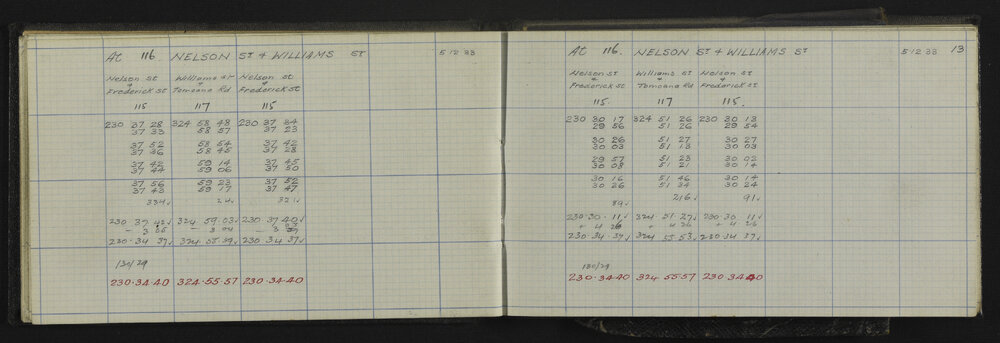 At 116 NELSON ST & WILLIAMS ST 5 12 33
Nelson St Williams St Nelson St
& & &
Frederick St Tomoana Rd Frederick St
115 117 115
230 37 28 324 58 48 230 37 34
37 33 58 57 37 23
37 52 58 54 37 42
37 36 58 45 37 28
37 42 59 14 37 45
37 44 59 06 37 50
37 56 59 23 37 52
37 43 59 17 37 47
334✓ 24✓ 321✓
230 37 42✓ 324 59 03✓ 230 37 40✓
- 3 05 - 3 04 - 3
230 34 37✓ 324 55 59✓ 230 34 37✓
130/29
230·34·40 324·55·57 230·34·40
At 116 NELSON ST & WILLIAMS ST 5 12 33 13
Nelson St Williams St Nelson St
& & &
Frederick St Tomoana Rd Frederick St
115 117 115.
230 30 17 324 51 26 230 30 13
29 56 51 26 29 54
30 26 51 27 30 27
30 03 51 13 30 03
29 57 51 23 30 02
30 03 51 21 30 14
30 16 51 46 30 14
30 26 51 34 30 24
89✓ 216✓ 91✓
230·30·11✓ 324 51·27✓ 230 30 11✓
+ 4 26 + 4 26 + 4 26
230·34 37✓ 324 55·53✓ 230·34 37✓
130/29
230·34·40 324 55·57 230·34·40